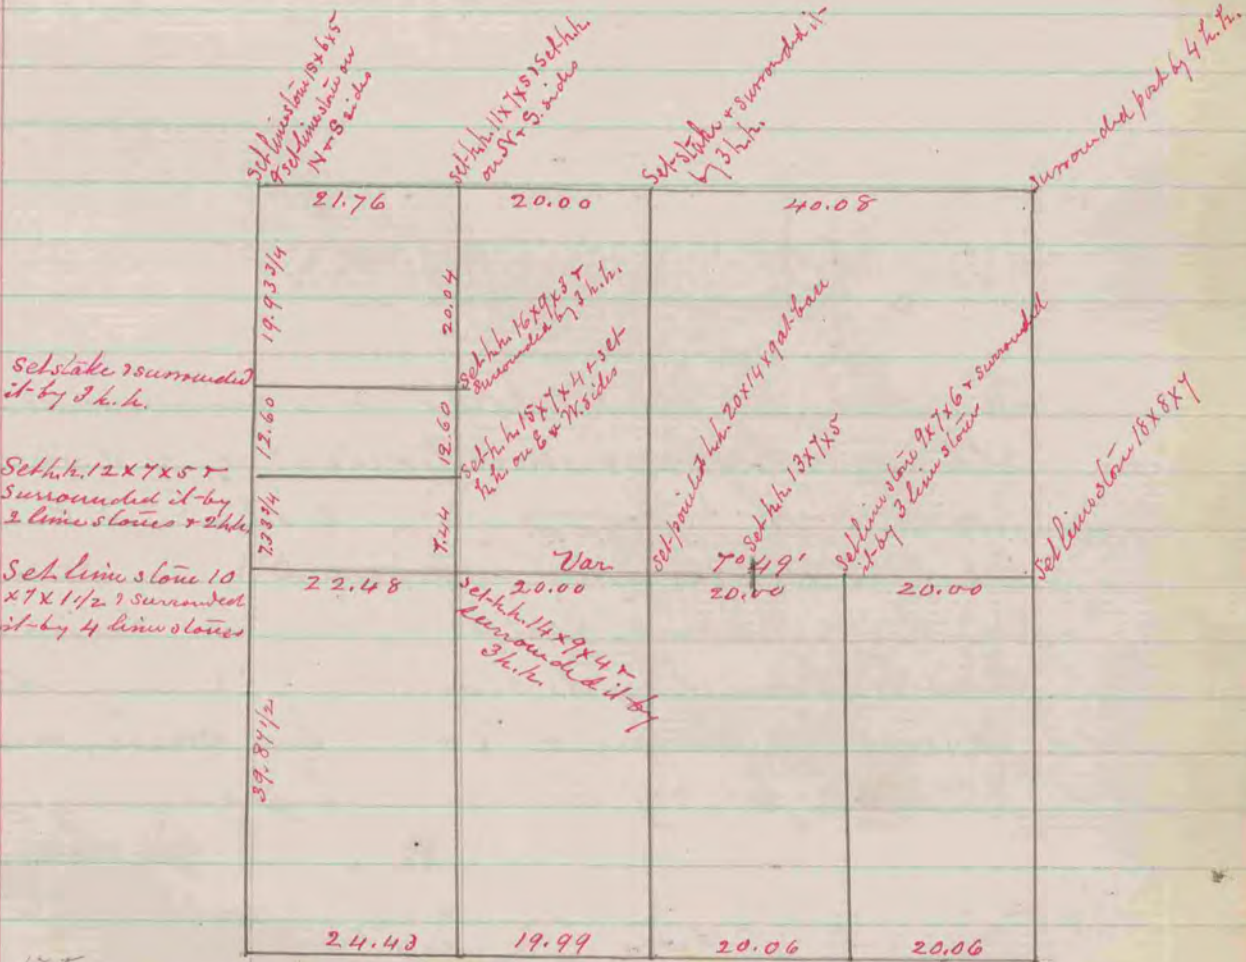 Set lime stone 18x6x5
& set lime stone on
N & S sides
set h.h. 11x7x5 & set h.h.
on N & S. sides
Set stake & surrounded it
by 3 h.h.
Surrounded post by 4 h.h.
21.76
20.00
40.08
19.93 3/4
20.04
set h.h. 16x9x3 &
surrounded by 3 h.h.
set stake & surrounded
it by 3 h.h.
12.60
12.60
set h.h. 15x7x4 & set
h.h. on E & W. sides
Set h.h. 12x7x5 &
surrounded it by
2 lime stones & 2 h.h.
7.33 3/4
7.44
set pointed h.h. 20x14x9 at base
set h.h. 13x7x5
set lime stone 9x7x6 & surrounded
it by 3 lime stones
Set lime stone 18x8x7
Var
7° 49'
Set lime stone 10
x7x1 1/2 & surrounded
it by 4 lime stones
22.48
20.00
20.00
20.00
set h.h. 14x9x4 &
surrounded it by
3 h.h.
39.87 1/2
24.43
19.99
20.06
20.06